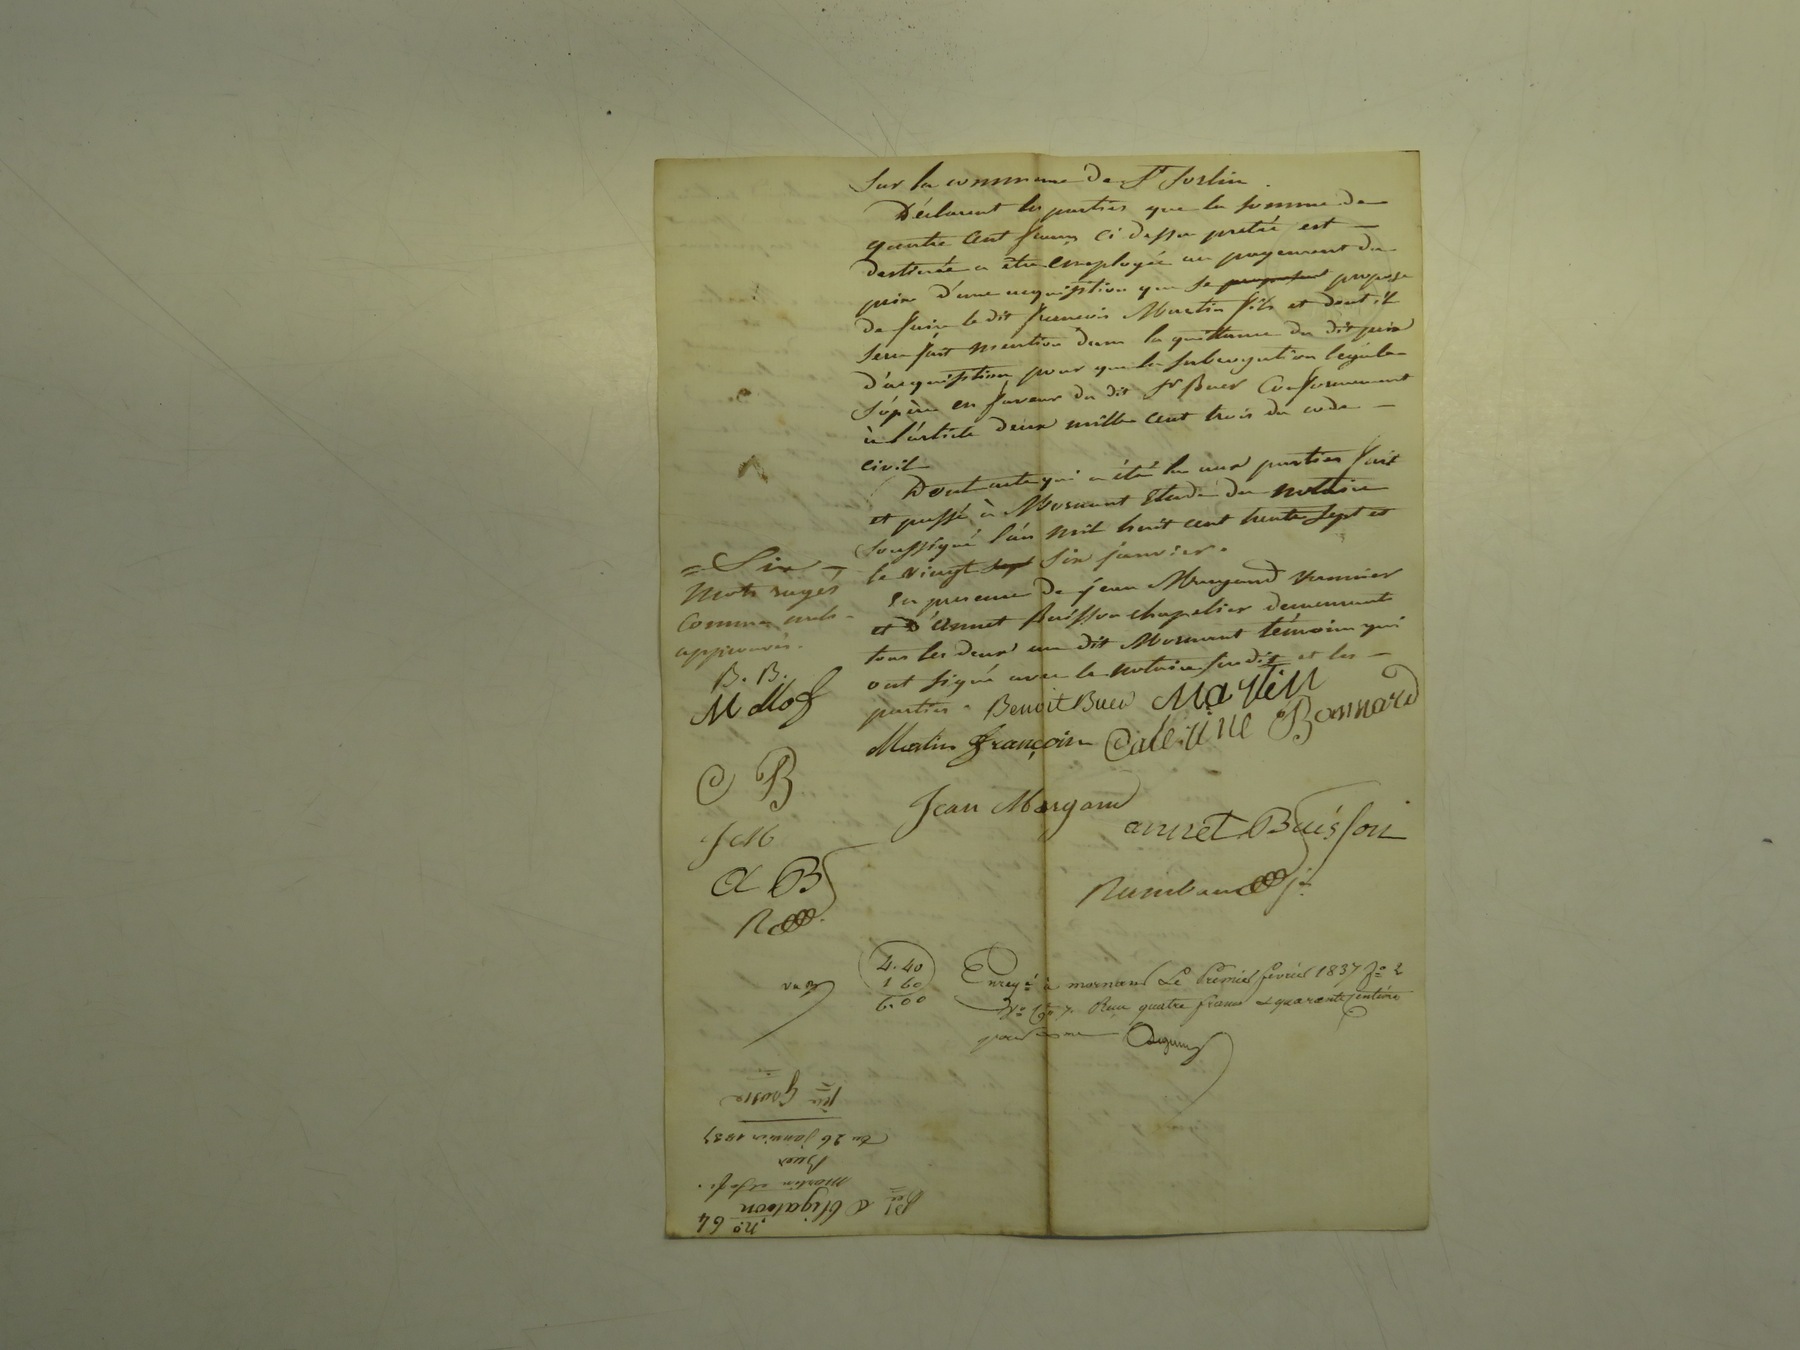 Sur la commune de St Sorlin.
Déclarent les parties que la somme de
quatre cent francs ci dessu pretée est —
destinée a être employée au payement du
prix d'une acquisition que se proposent propose
de faire le dit francois Martin fils et dont il
sera fait mention dans la quittance du dit prix
d'acquisition pour que la subrogation légale
s'opère en faveur du dit Sr Buer Conformement
à l'article deux mille cent trois du code —
civil
Dont acte qui a été lu aux parties fait
et passé à Mornant Etude du notaire
soussigné l'an mil huit cent trente sept et
le vingt sept six janvier.
En presence de jean Margand
et d'annet Buisson chapelier demeurant
tous les deux au dit Mornant témoins qui
ont signé avec le notaire susdit et les —
parties. Benoit Buer Martin
Martin françois Caterine Bonnard
Jean Margand
annet Buisson
= Six
mots rayés
comme nuls
approuvés.
B. B.
M
C B
J M
a B
R
4. 40
1 60
6. 00
Enregé à mornant Le Premier fevrier 1837 fo 2
Vo Reçu quatre francs quarante centimes
n.º 64
Obligation
Martin
Buer
du 26 janvier 1837
1ere Grosse